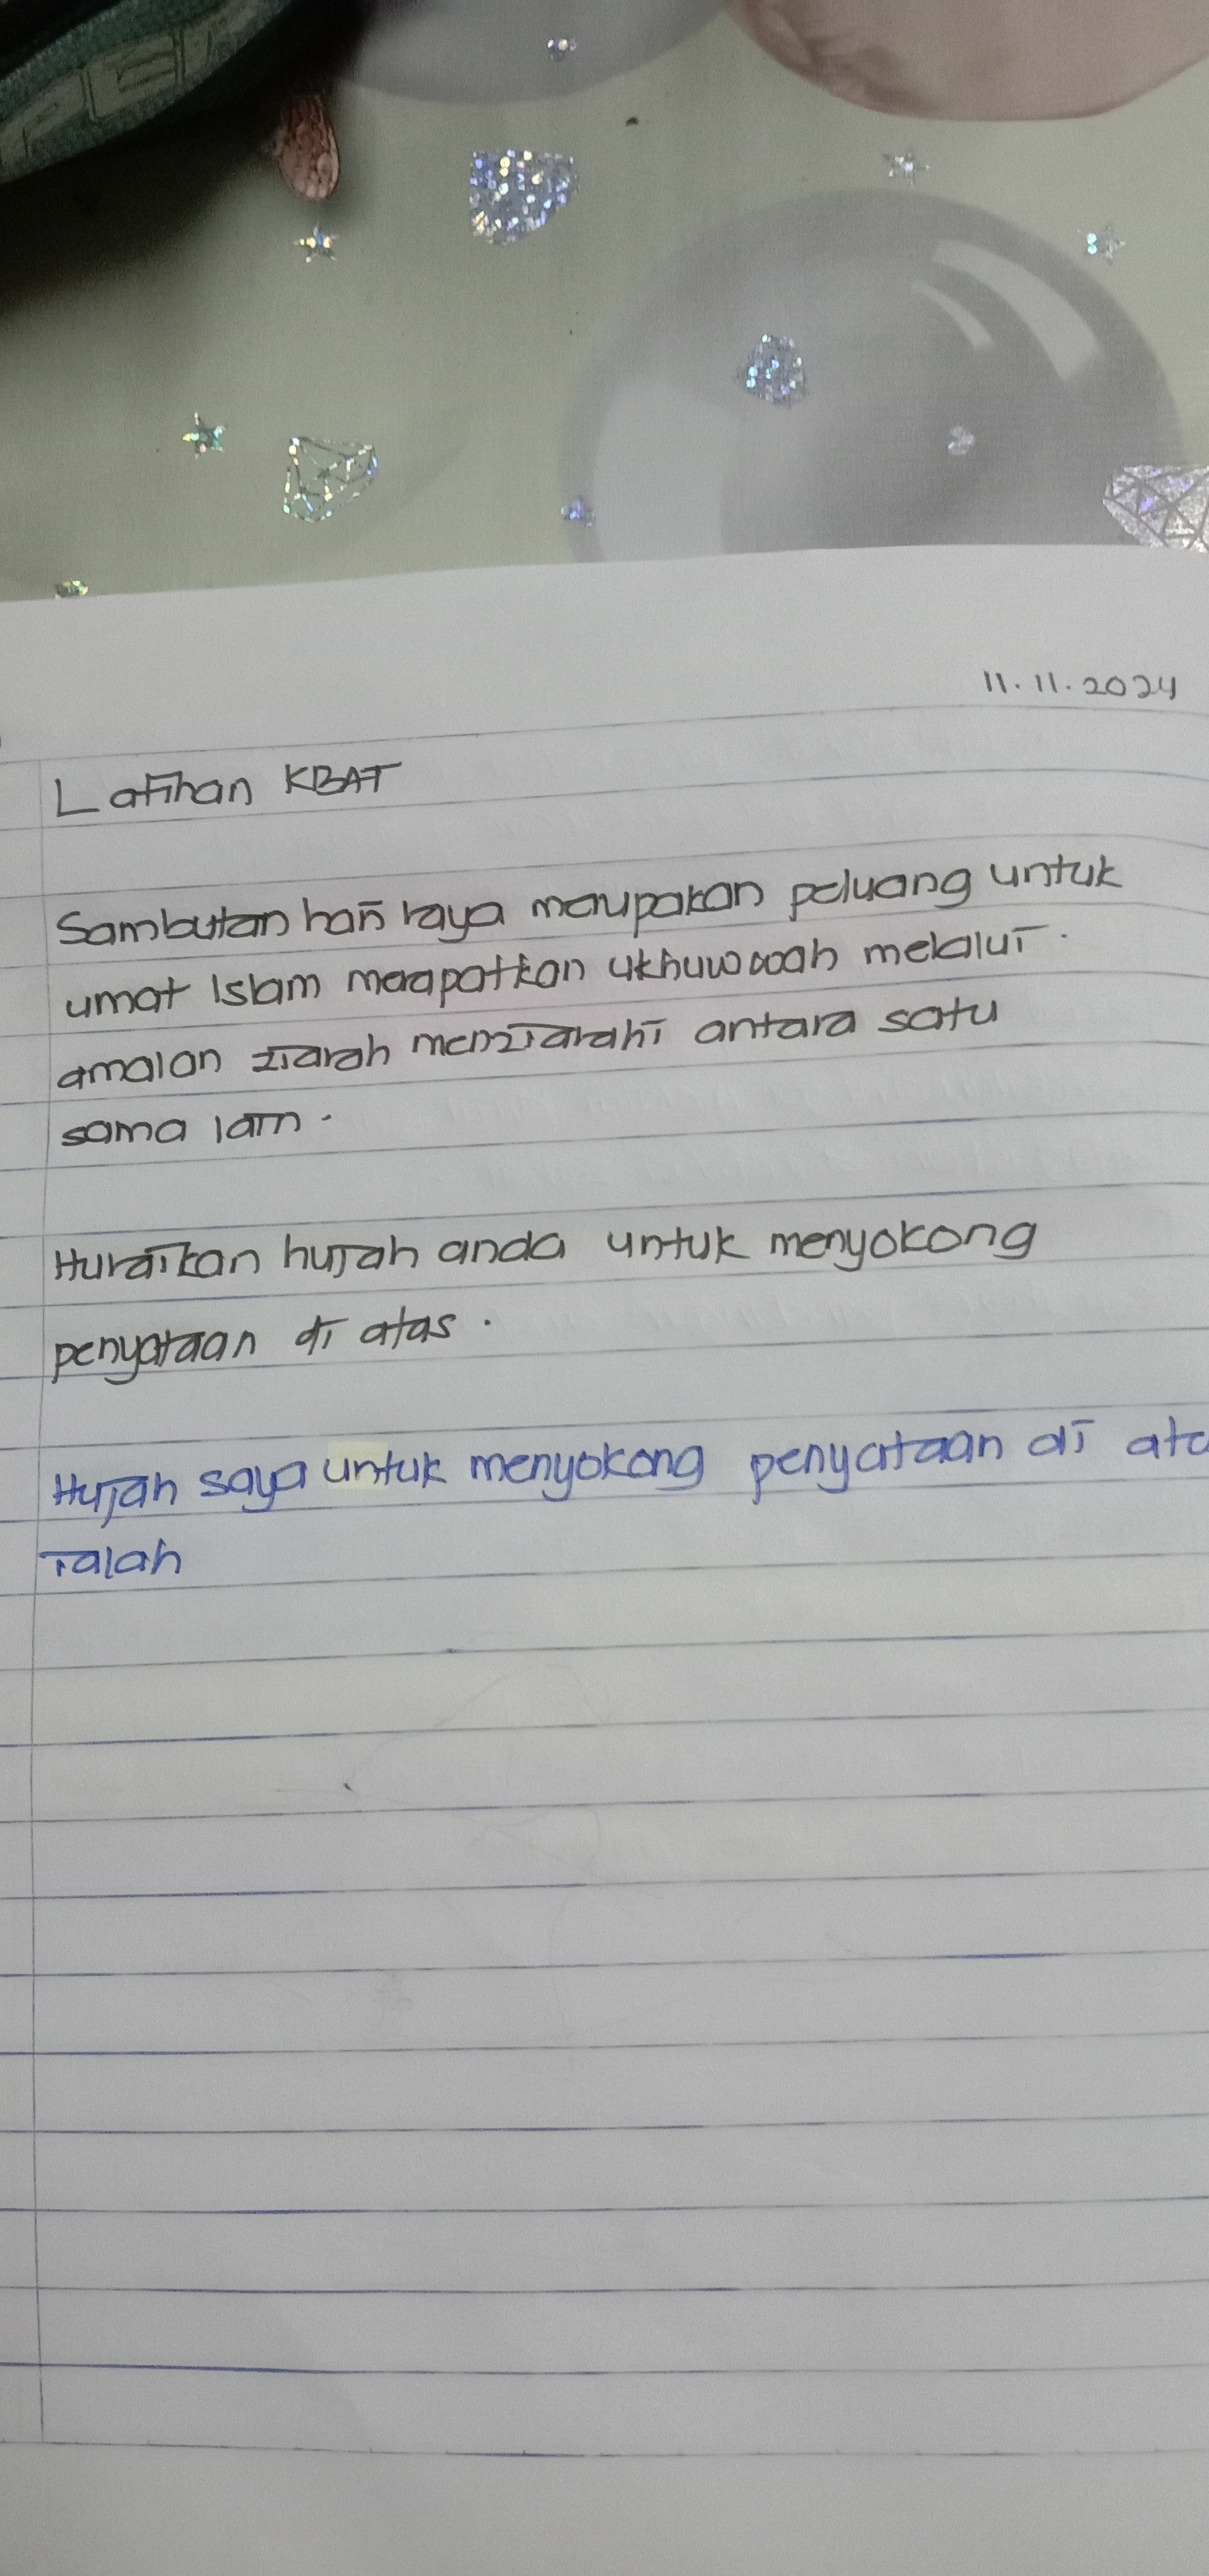 11.11.2024
Latihan KBAT
Sambutan hari raya merupakan peluang untuk
umat Islam merapatkan ukhuwwah melalui
amalan ziarah menziarahi antara satu
sama lain.
Huraikan hujah anda untuk menyokong
penyataan di atas.
Hujah saya untuk menyokong penyataan di
ialah